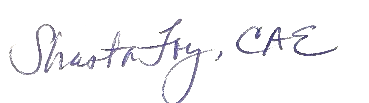 Shasta Foy, CAE